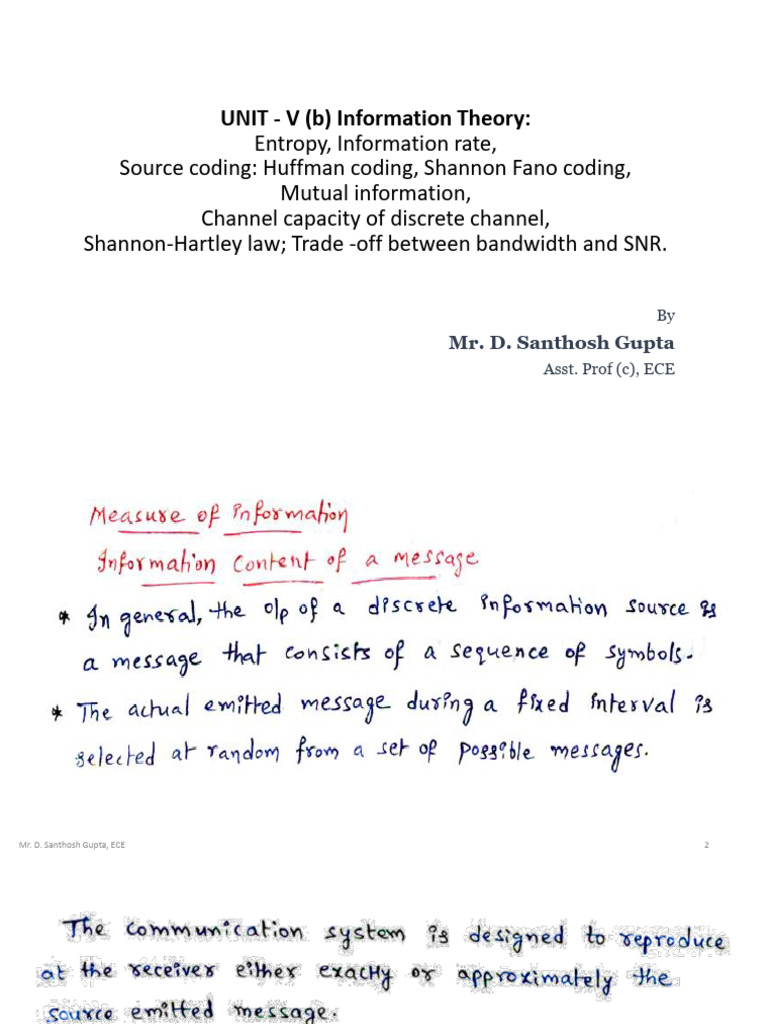 UNIT - V (b) Information Theory:
Entropy, Information rate,
Source coding: Huffman coding, Shannon Fano coding,
Mutual information,
Channel capacity of discrete channel,
Shannon-Hartley law; Trade -off between bandwidth and SNR.
By
Mr. D. Santhosh Gupta
Asst. Prof (c), ECE
Measure of Information
Information Content of a message
* In general, the o/p of a discrete information source is
a message that consists of a sequence of symbols.
* The actual emitted message during a fixed interval is
selected at random from a set of possible messages.
Mr. D. Santhosh Gupta, ECE 2
The communication system is designed to reproduce
at the receiver either exactly or approximately the
source emitted message.